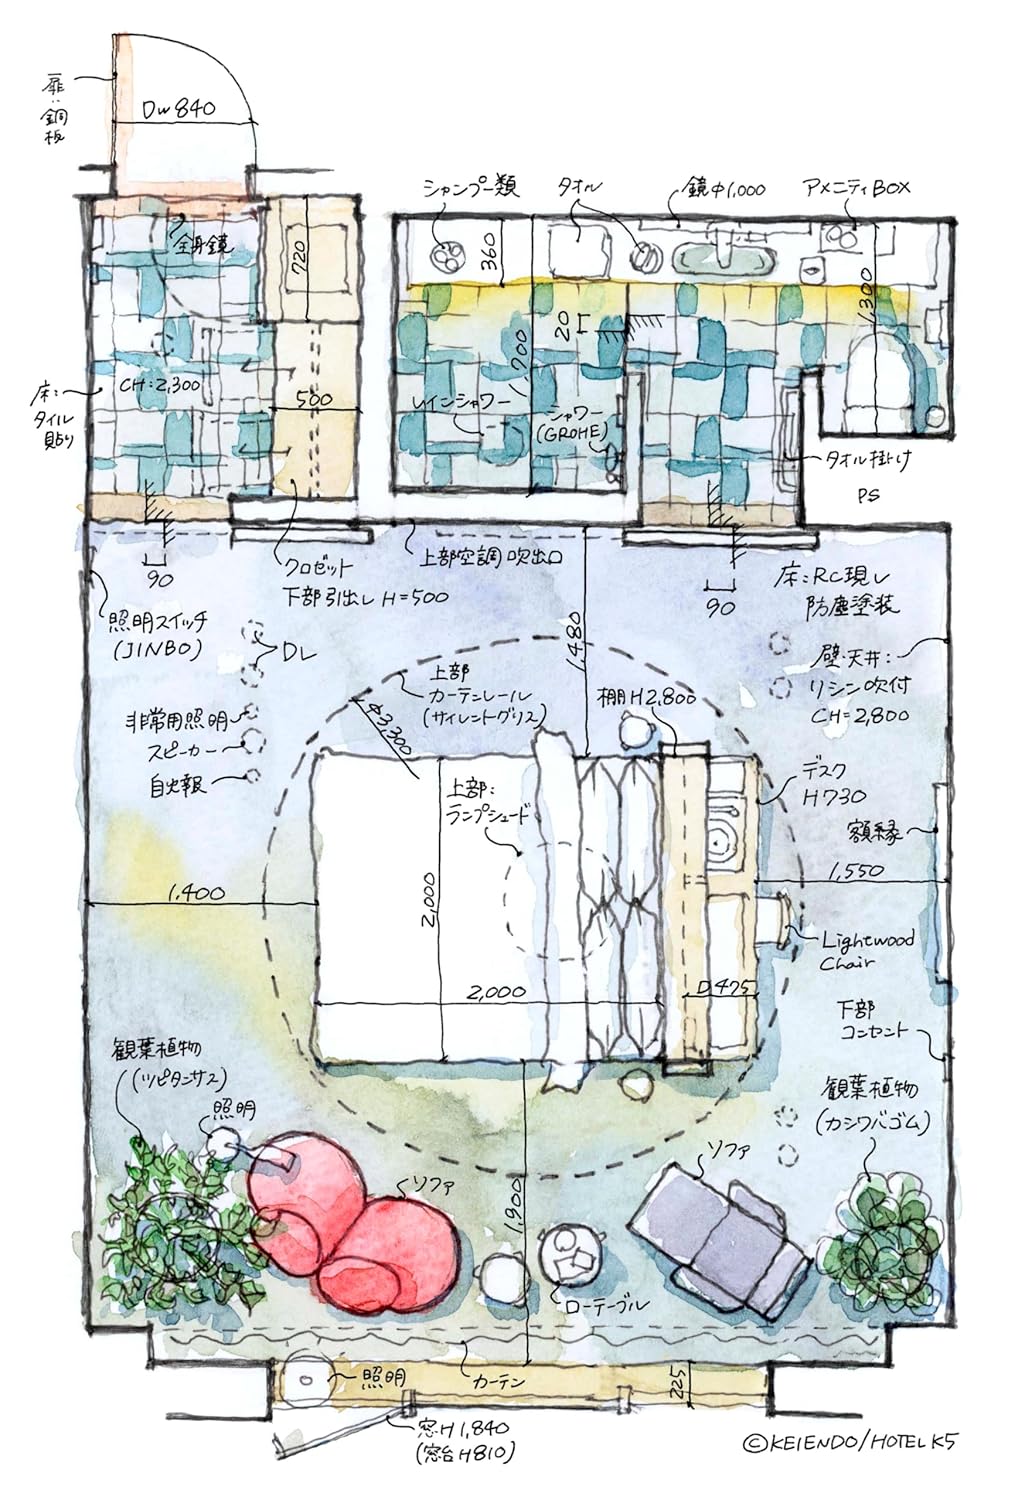 扉:銅板
DW840
全身鏡
720
床:
タイル
貼り
CH=2,300
500
シャンプー類
タオル
鏡φ1,000
アメニティBOX
360
1,700
20
1,300
レインシャワー
シャワー
(GROHE)
タオル掛け
PS
90
クロゼット
下部引出し H=500
上部空調吹出口
90
床:RC現し
防塵塗装
照明スイッチ
(JINBO)
DL
非常用照明
スピーカー
自火報
上部
カーテンレール
(サイレントグリス)
φ3,300
1,480
棚H2,800
壁・天井:
リシン吹付
CH=2,800
上部:
ランプシェード
デスク
H730
額縁
1,400
2,000
2,000
D475
1,550
Lightwood
Chair
下部
コンセント
観葉植物
(ツピタンサス)
照明
ソファ
1,900
ローテーブル
ソファ
観葉植物
(カシワバゴム)
照明
カーテン
225
窓H1,840
(窓台H810)
©KEIENDO/HOTEL K5